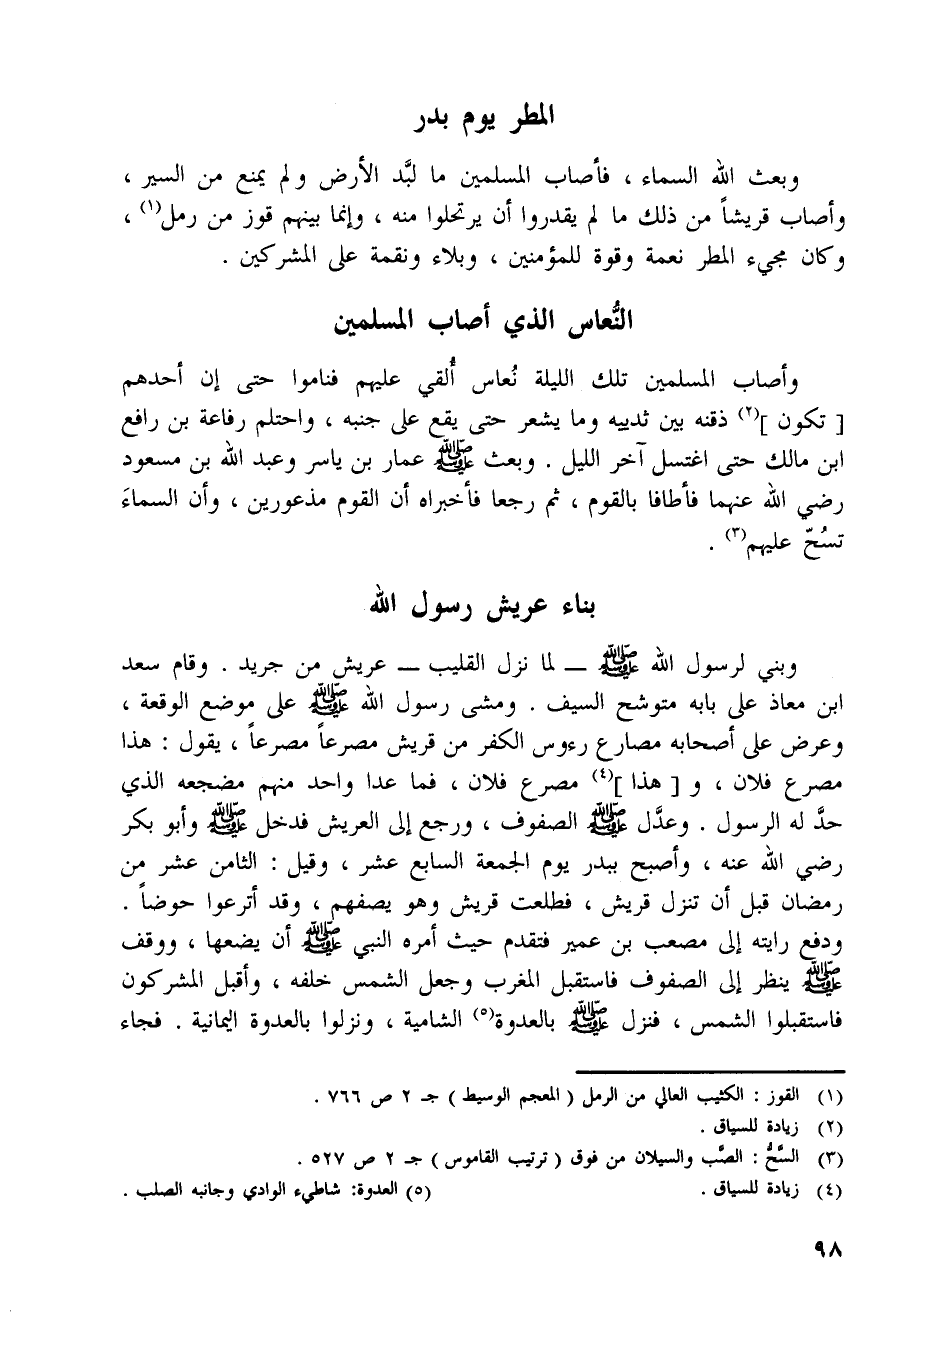 المطر يوم بدر
وبعث الله السماء ، فأصاب المسلمين ما لبَّد الأرض ولم يمنع من السير ،
وأصاب قريشاً من ذلك ما لم يقدروا أن يرتحلوا منه ، وإنما بينهم قوز من رمل(١) ،
وكان مجيء المطر نعمة وقوة للمؤمنين ، وبلاء ونقمة على المشركين .
النُّعاس الذي أصاب المسلمين
وأصاب المسلمين تلك الليلة نُعاس أُلقي عليهم فناموا حتى إن أحدهم
[ تكون ](٢) ذقنه بين ثدييه وما يشعر حتى يقع على جنبه ، واحتلم رفاعة بن رافع
ابن مالك حتى اغتسل آخر الليل . وبعث ﷺ عمار بن ياسر وعبد الله بن مسعود
رضي الله عنهما فأطافا بالقوم ، ثم رجعا فأخبراه أن القوم مذعورين ، وأن السماءَ
تسُحّ عليهم(٣) .
بناء عريش رسول الله
وبني لرسول الله ﷺ ــ لما نزل القليب ــ عريش من جريد . وقام سعد
ابن معاذ على بابه متوشح السيف . ومشى رسول الله ﷺ على موضع الوقعة ،
وعرض على أصحابه مصارع رءوس الكفر من قريش مصرعاً مصرعاً ، يقول : هذا
مصرع فلان ، و [ هذا ](٤) مصرع فلان ، فما عدا واحد منهم مضجعه الذي
حدَّ له الرسول . وعدَّل ﷺ الصفوف ، ورجع إلى العريش فدخل ﷺ وأبو بكر
رضي الله عنه ، وأصبح ببدر يوم الجمعة السابع عشر ، وقيل : الثامن عشر من
رمضان قبل أن تنزل قريش ، فطلعت قريش وهو يصفهم ، وقد أترعوا حوضاً .
ودفع رايته إلى مصعب بن عمير فتقدم حيث أمره النبي ﷺ أن يضعها ، ووقف
ﷺ ينظر إلى الصفوف فاستقبل المغرب وجعل الشمس خلفه ، وأقبل المشركون
فاستقبلوا الشمس ، فنزل ﷺ بالعدوة(٥) الشامية ، ونزلوا بالعدوة اليمانية . فجاء
(١) القوز : الكثيب العالي من الرمل ( المعجم الوسيط ) جـ ٢ ص ٧٦٦ .
(٢) زيادة للسياق .
(٣) السَّحُّ : الصَّب والسيلان من فوق ( ترتيب القاموس ) جـ ٢ ص ٥٢٧ .
(٤) زيادة للسياق . (٥) العدوة: شاطيء الوادي وجانبه الصلب .
٩٨